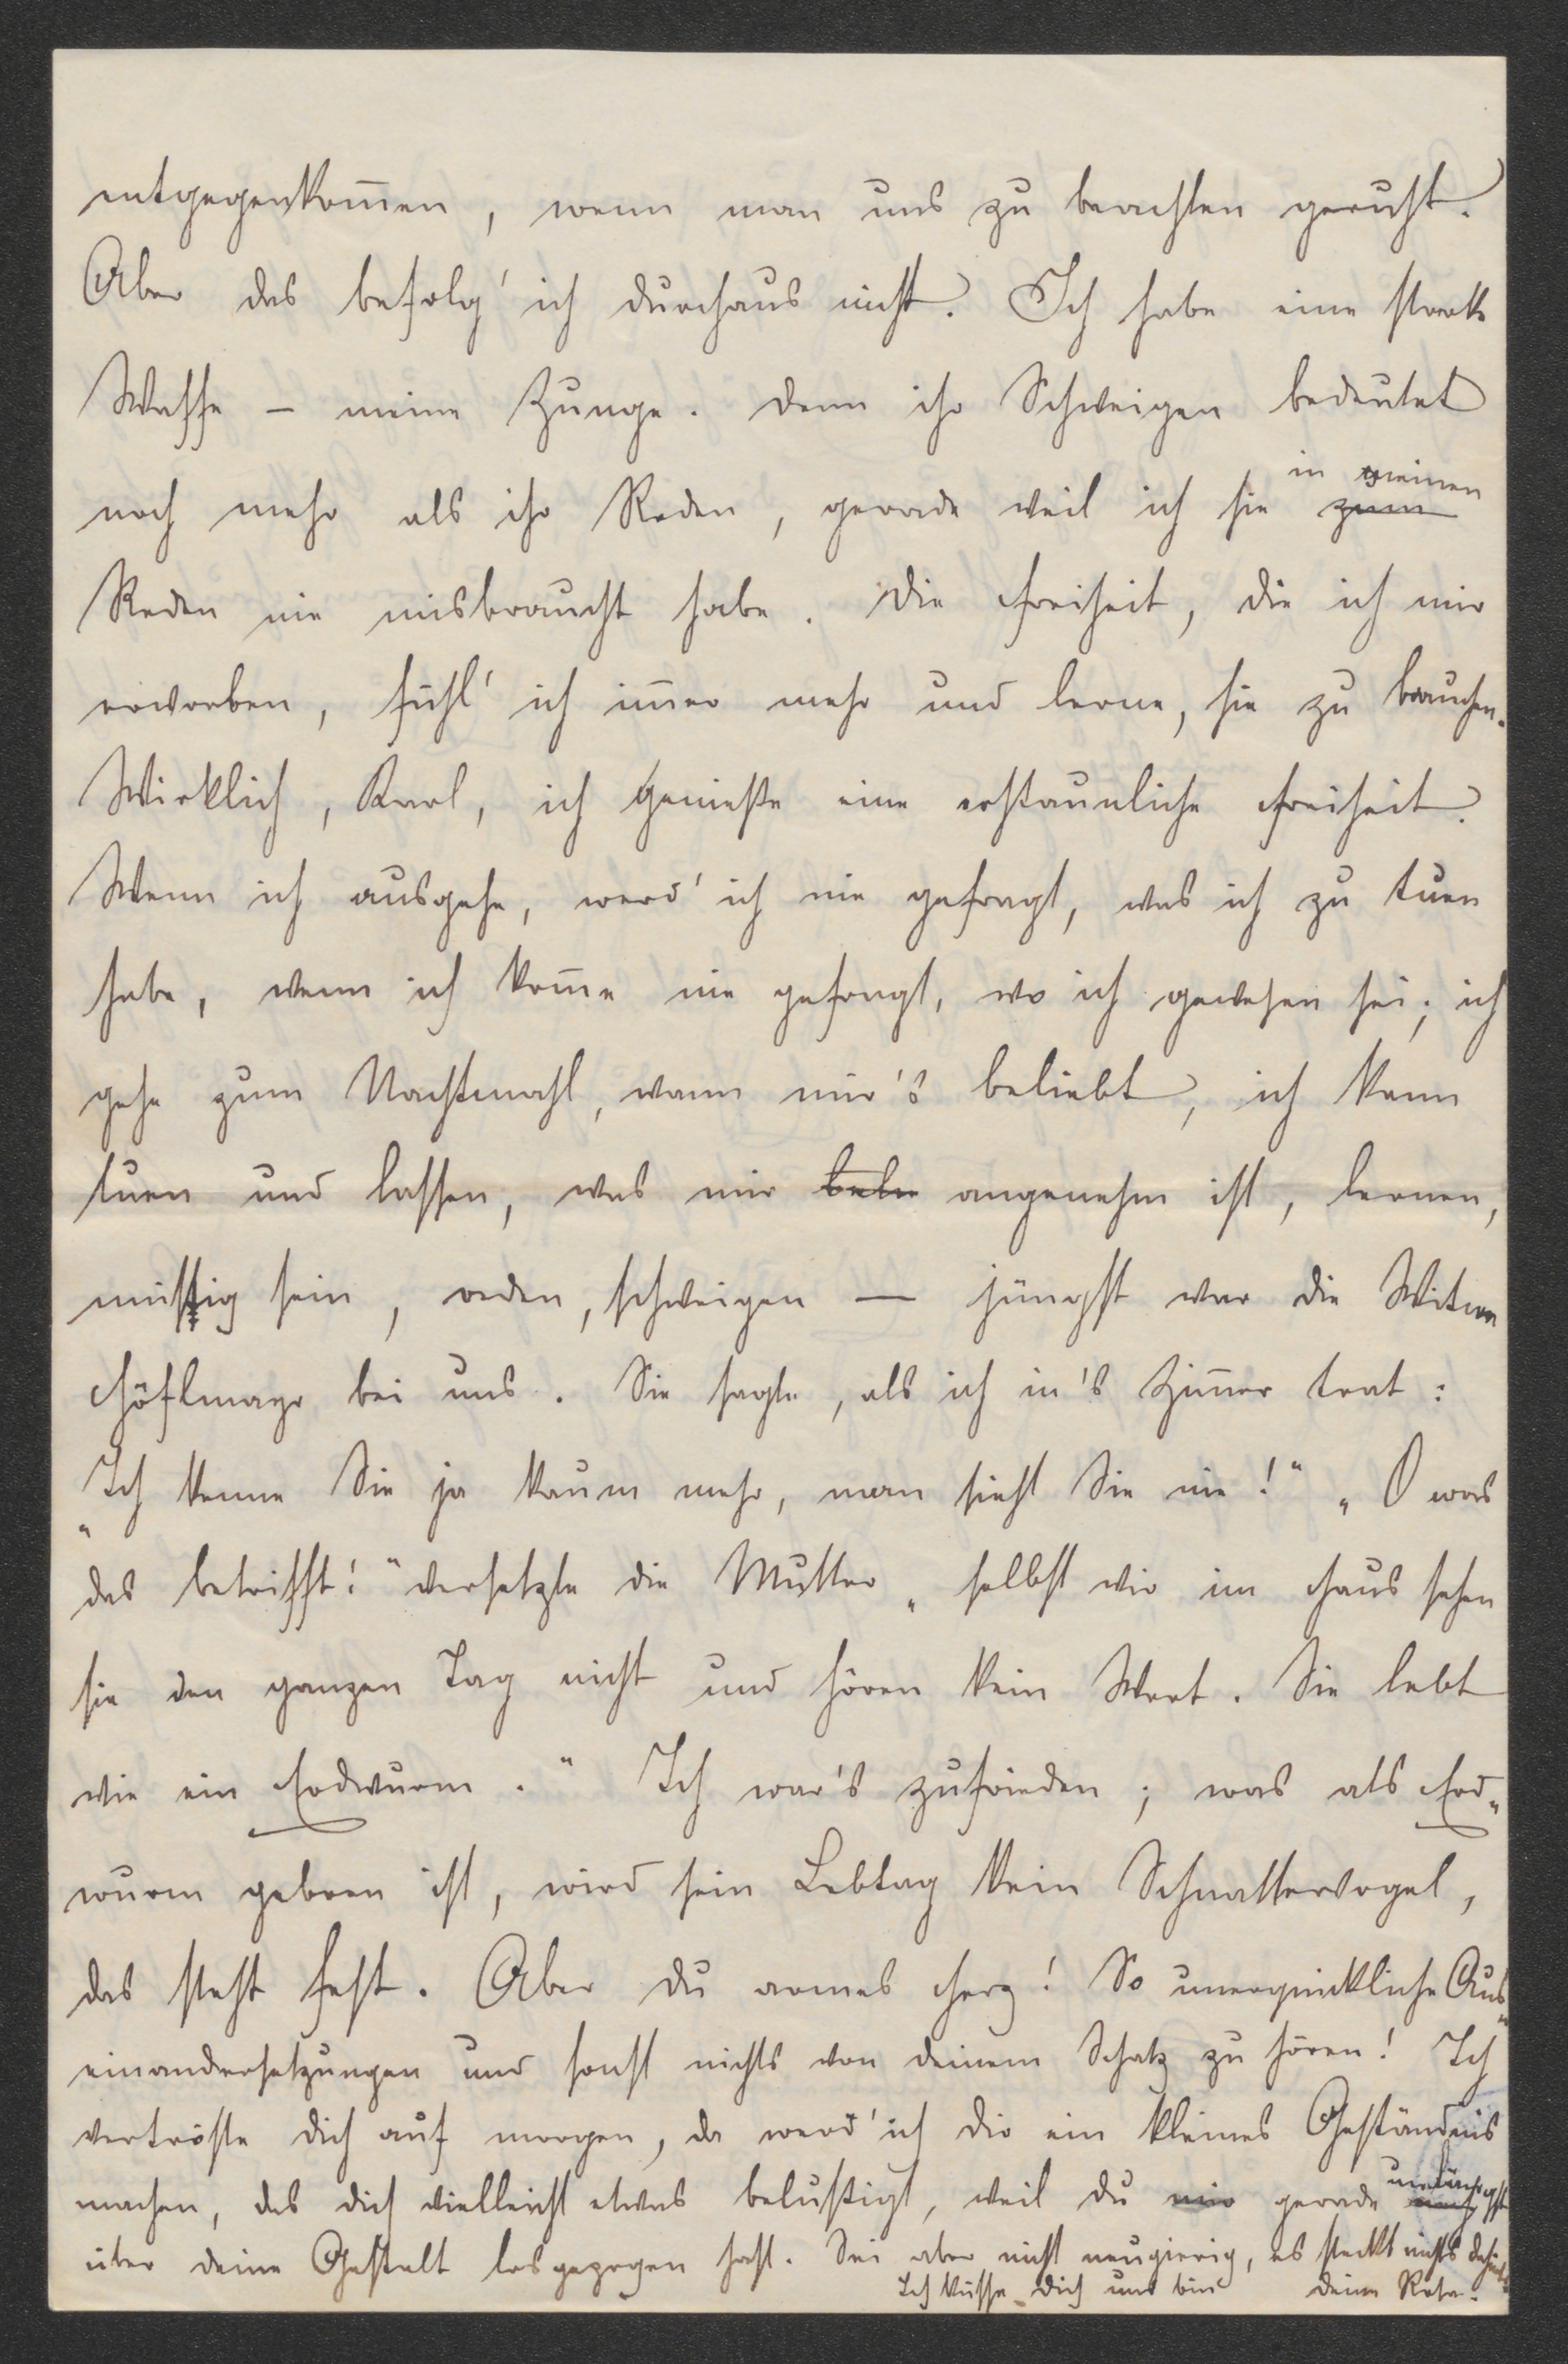 entgegenkom̅en, wenn man uns zu beachten geruht.
Aber das befolg' ich durchaus nicht. Ich habe eine starke
Waffe – meine Zunge. Denn ihr Schweigen bedeutet
noch mehr als ihr Reden, gerade weil ich sie ~~zum~~ in meinen
Reden nie misbraucht habe. Die Freiheit, die ich mir
erworben, fühl' ich im̅er mehr und lerne, sie zu brauchen.
Wirklich, Karl, ich genieße eine erstaunliche Freiheit.
Wenn ich ausgehe, werd' ich nie gefragt, was ich zu tuen
habe, wenn ich kom̅e nie gefragt, wo ich gewesen sei; ich
gehe zum Nachtmahl, wann mir's beliebt, ich kann
tuen und lassen, was mir ~~belie~~ angenehm ist, lernen,
müssig sein, reden, schweigen — jüngst war die Witwe
Höflmayr bei uns. Sie sagte, als ich in's Zim̅er trat:
„Ich kenne Sie ja kaum mehr, man sieht Sie nie!“ „O was
das betrifft!“ versetzte die Mutter „selbst wir im Haus sehen
sie den ganzen Tag nicht und hören kein Wort. Sie lebt
wie ein Erdwurm.“ Ich war's zufrieden; was als Erd„
wurm geboren ist, wird sein Lebtag kein Schnattervogel,
das steht fest. Aber du armes Herz! So unerquickliche Aus„
einandersetzungen und sonst nichts von deinem Schatz zu hören! Ich
vertröste dich auf morgen, da werd' ich dir ein kleines Geständnis
machen, das dich vielleicht etwas belustigt, weil du ~~mir~~ gerade unlängst
über deine Gestalt losgezogen hast. Sei aber nicht neugierig, es steckt nichts dahinter.
Ich küsse Dich und bin deine Rosa.